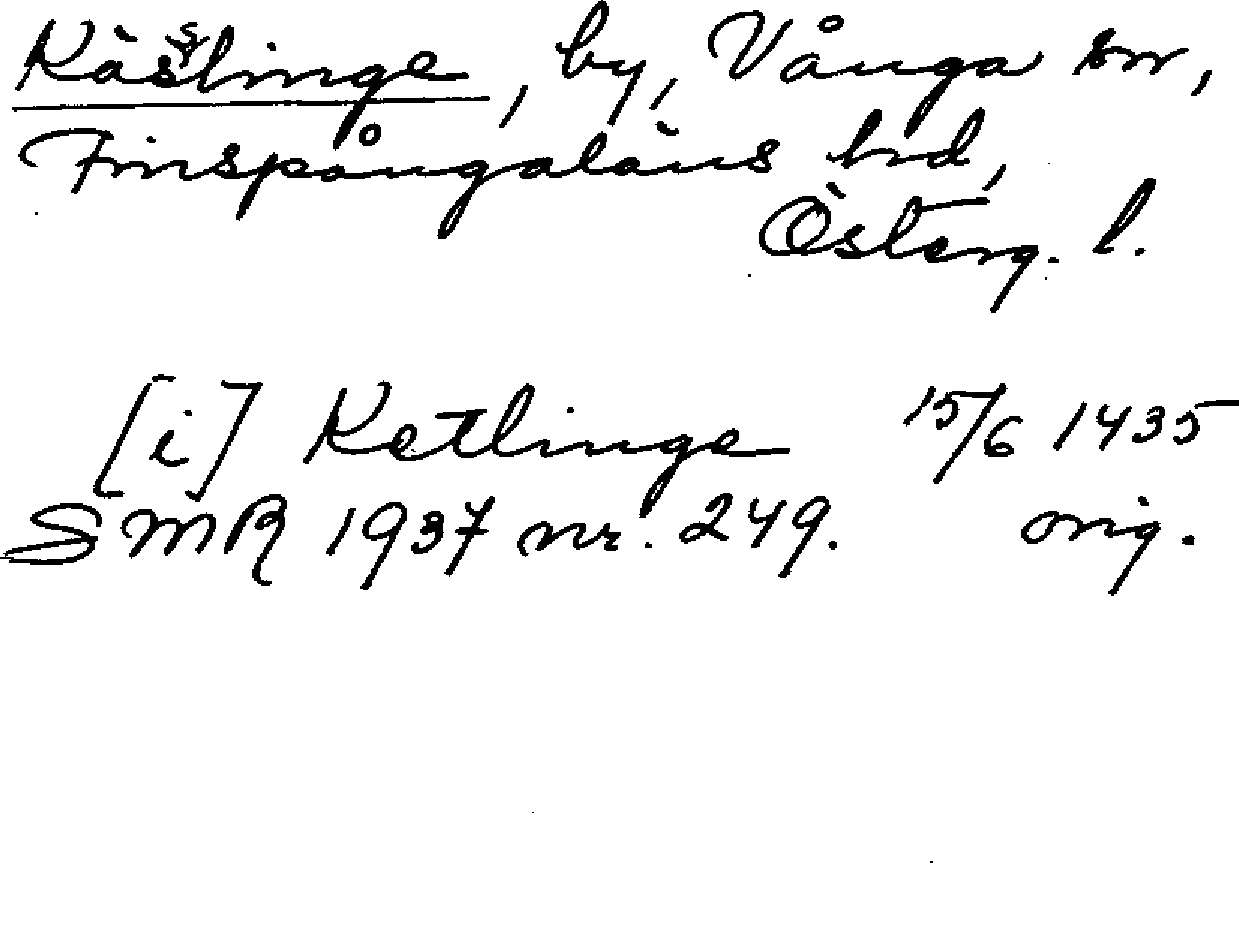 Kästlinge, by, Vånga sn,
Finspångaläns hrd,
Österg. l.
[i] Ketlinge 15/6 1435
SMR 1937 nr. 249. orig.